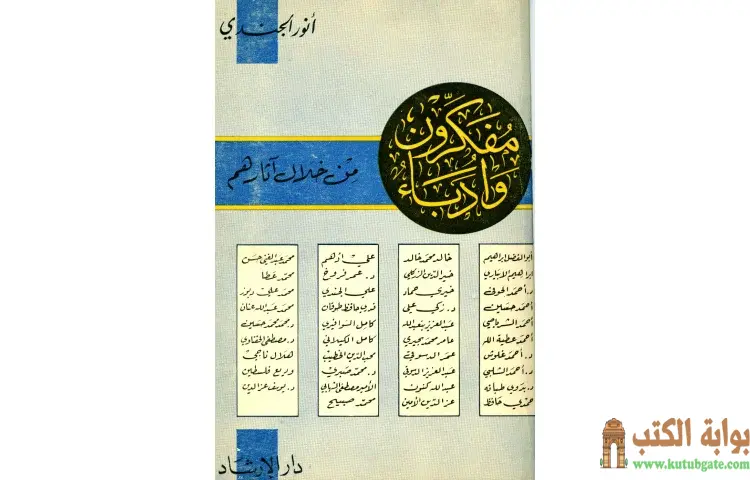 أنور الجندي
مفكرون
وأدباء
من خلال آثارهم
أبو الفضل إبراهيم
إبراهيم الأبياري
د. أحمد الحوفي
أحمد حسين
أحمد الشرباصي
أحمد عطية الله
د. أحمد غلوش
د. أحمد الشلبي
د. بدوي طبانة
حمدي حافظ
خالد محمد خالد
خير الدين الزركلي
خيري حماد
د. زكي علي
عبد العزيز بنعبد الله
عامر محمد بحيري
عمر الدسوقي
عبد العزيز الميمني
عبد الله كنون
عز الدين الأمين
علي أدهم
د. عمر فروخ
علي الجندي
قدري حافظ طوقان
كامل السوافيري
كامل الكيلاني
محب الدين الخطيب
د. محمد صبري
الأمير مصطفى الشهابي
محمد صبيح
محمد عبد الغني حسن
محمد عطا
محمد علي دبوز
محمد عبد الله عنان
د. محمد محمد حسين
د. مصطفى الحفناوي
هلال ناجي
وديع فلسطين
د. يوسف عز الدين
دار الإرشاد
بوابة الكتب
www.kutubgate.com